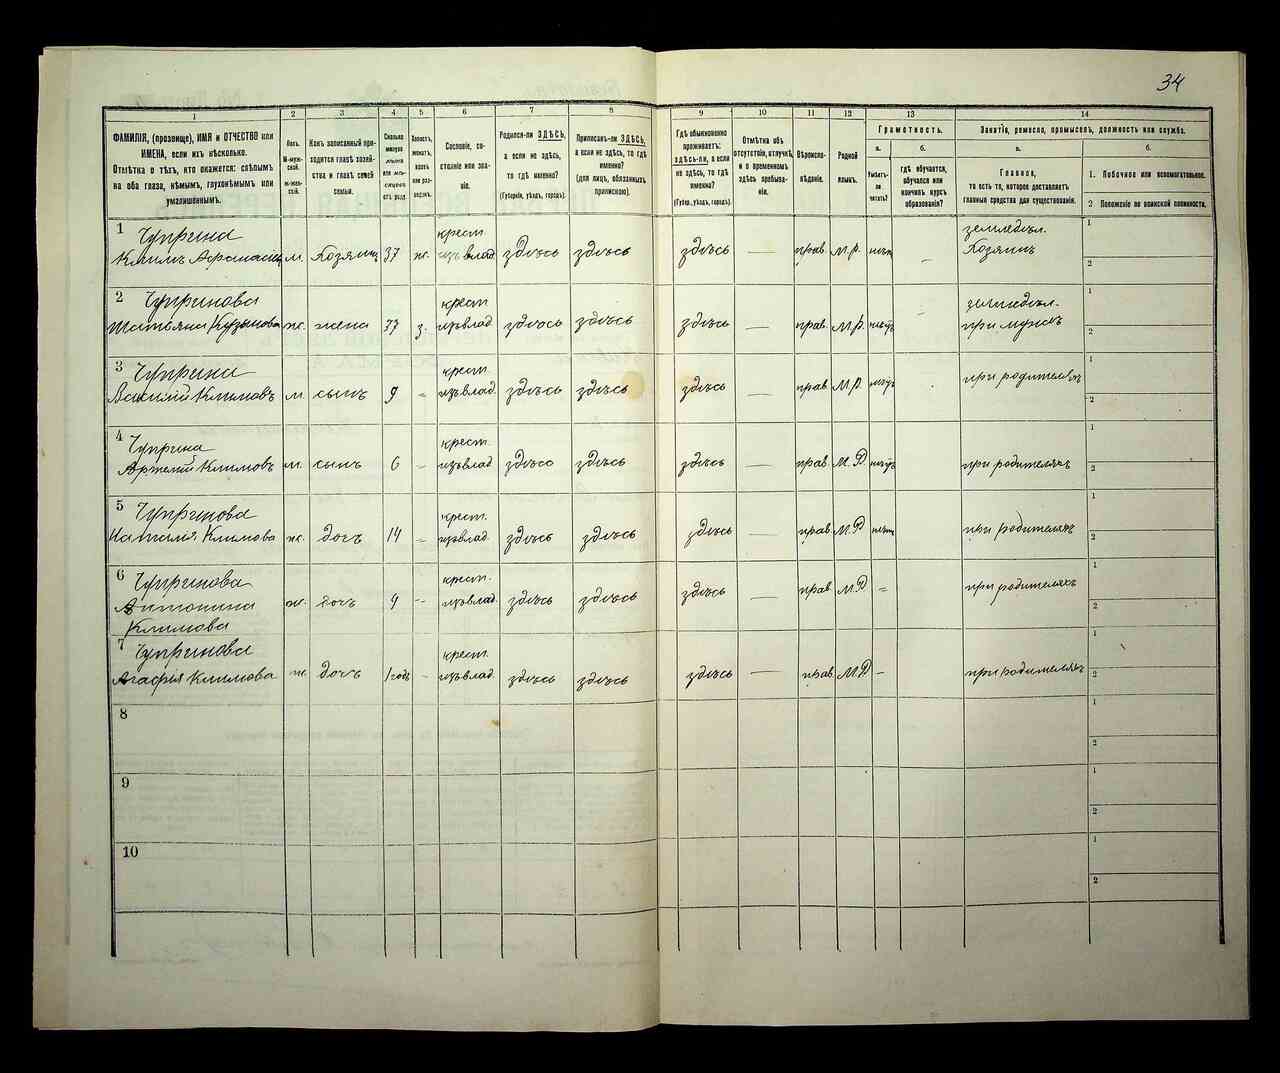 34
1 2 3 4 5 6 7 8 9 10 11 12 13 14
ФАМИЛІЯ, (прозвище), ИМЯ и ОТЧЕСТВО или
ИМЕНА, если ихъ нѣсколько.
Отмѣтка о тѣхъ, кто окажется: слѣпымъ
на оба глаза, нѣмымъ, глухонѣмымъ или
умалишеннымъ.
Полъ.
М-муж-
ской.
Ж-жен-
скій.
Какъ записанный при-
ходится главѣ хозяй-
ства и главѣ своей
семьи.
Сколько
минуло
лѣтъ
или мѣ-
сяцевъ
отъ роду.
Холостъ,
женатъ,
вдовъ
или раз-
веденъ.
Сословіе, со-
стояніе или зва-
ніе.
Родился-ли ЗДѢСЬ,
а если не здѣсь,
то гдѣ именно?
(Губернія, уѣздъ, городъ).
Приписанъ-ли ЗДѢСЬ,
а если не здѣсь, то гдѣ
именно?
(для лицъ, обязанныхъ
припиской).
Гдѣ обыкновенно
проживаетъ:
здѣсь-ли, а если
не здѣсь, то гдѣ
именно?
(Губер., уѣздъ, городъ).
Отмѣтка объ
отсутствіи, отлучкѣ
и о временномъ
здѣсь пребыва-
ніи.
Вѣроиспо-
вѣданіе.
Родной
языкъ.
Грамотность.
а.
Умѣетъ-
ли
читать?
б.
гдѣ обучается,
обучался или
кончилъ курсъ
образованія?
Занятіе, ремесло, промыселъ, должность или служба.
а.
Главное,
то есть то, которое доставляетъ
главныя средства для существованія.
б.
1. Побочное или вспомогательное.
2 Положеніе по воинской повинности.
1 Чуприна крест. земледѣл. 1
Климъ Афанасьев м. Хозяинъ 37 ж. изъ влад. здѣсь здѣсь здѣсь — прав. М.р. нѣтъ Хозяинъ 2
2 Чупринова крест. земледѣл. 1
Татьяна Кузьмова ж. жена 37 з. изъ влад. здѣсь здѣсь здѣсь — прав. М.р. нѣтъ при мужѣ 2
3 Чуприна крест. 1
Василій Климовъ м. сынъ 9 - изъ влад. здѣсь здѣсь здѣсь — прав. М.р. нѣтъ при родителяхъ 2
4 Чуприна крест. 1
Артемій Климовъ м. сынъ 6 - изъ влад. здѣсь здѣсь здѣсь — прав. М.Р. нѣтъ при родителяхъ 2
5 Чупринова крест. 1
Наталія Климова ж. дочь 14 - изъ влад. здѣсь здѣсь здѣсь — прав. М.Р. нѣтъ при родителяхъ 2
6 Чупринова крест. 1
Антонина ж. дочь 4 - изъ влад. здѣсь здѣсь здѣсь — прав. М.Р. = при родителяхъ 2
Климова
7 Чупринова крест. 1
Агафія Климова ж. дочь 1 годъ - изъ влад. здѣсь здѣсь здѣсь — прав. М.Р. - при родителяхъ 2
8 1
2
9 1
2
10 1
2